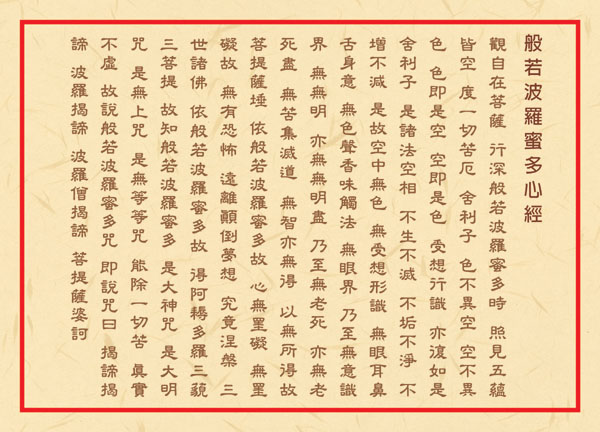 般若波羅蜜多心經
觀自在菩薩 行深般若波羅蜜多時 照見五蘊
皆空 度一切苦厄 舍利子 色不異空 空不異
色 色即是空 空即是色 受想行識 亦復如是
舍利子 是諸法空相 不生不滅 不垢不淨 不
增不減 是故空中無色 無受想形識 無眼耳鼻
舌身意 無色聲香味觸法 無眼界 乃至無意識
界 無無明 亦無無明盡 乃至無老死 亦無老
死盡 無苦集滅道 無智亦無得 以無所得故
菩提薩埵 依般若波羅蜜多故 心無罣礙 無罣
礙故 無有恐怖 遠離顛倒夢想 究竟涅槃 三
世諸佛 依般若波羅蜜多故 得阿耨多羅三藐
三菩提 故知般若波羅蜜多 是大神咒 是大明
咒 是無上咒 是無等等咒 能除一切苦 眞實
不虛 故說般若波羅蜜多咒 即說咒曰 揭諦揭
諦 波羅揭諦 波羅僧揭諦 菩提薩婆訶